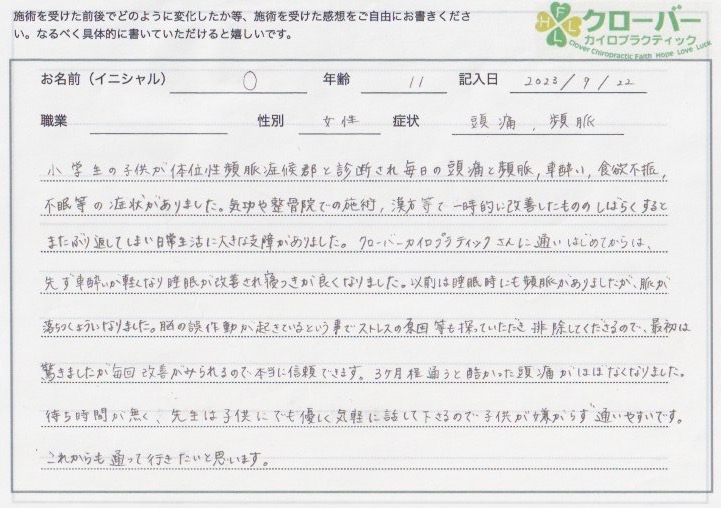 施術を受けた前後でどのように変化したか等、施術を受けた感想をご自由にお書きくださ
い。なるべく具体的に書いていただけると嬉しいです。
HFLL
クローバー
カイロプラクティック
Clover Chiropractic Faith Hope Love Luck
お名前（イニシャル） O 年齢 11 記入日 2023/9/22
職業 性別 女性 症状 頭痛、頻脈
小学生の子供が体位性頻脈症候群と診断され毎日の頭痛と頻脈，車酔い，食欲不振，
不眠等の症状がありました。気功や整骨院での施術，漢方等で一時的に改善したもののしばらくすると
またぶり返してしまい日常生活に大きな支障がありました。クローバーカイロプラティックさんに通いはじめてからは、
先ず車酔いが軽くなり睡眠が改善され寝つきが良くなりました。以前は睡眠時にも頻脈がありましたが、脈が
落ちつくようになりました。脳の誤作動が起きているという事でストレスの原因等も探っていただき排除してくださるので、最初は
驚きましたが毎回改善がみられるので本当に信頼できます。3ヶ月程通うと酷かった頭痛がほぼなくなりました。
待ち時間が無く、先生は子供にでも優しく気軽に話して下さるので子供が嫌がらず通いやすいです。
これからも通って行きたいと思います。